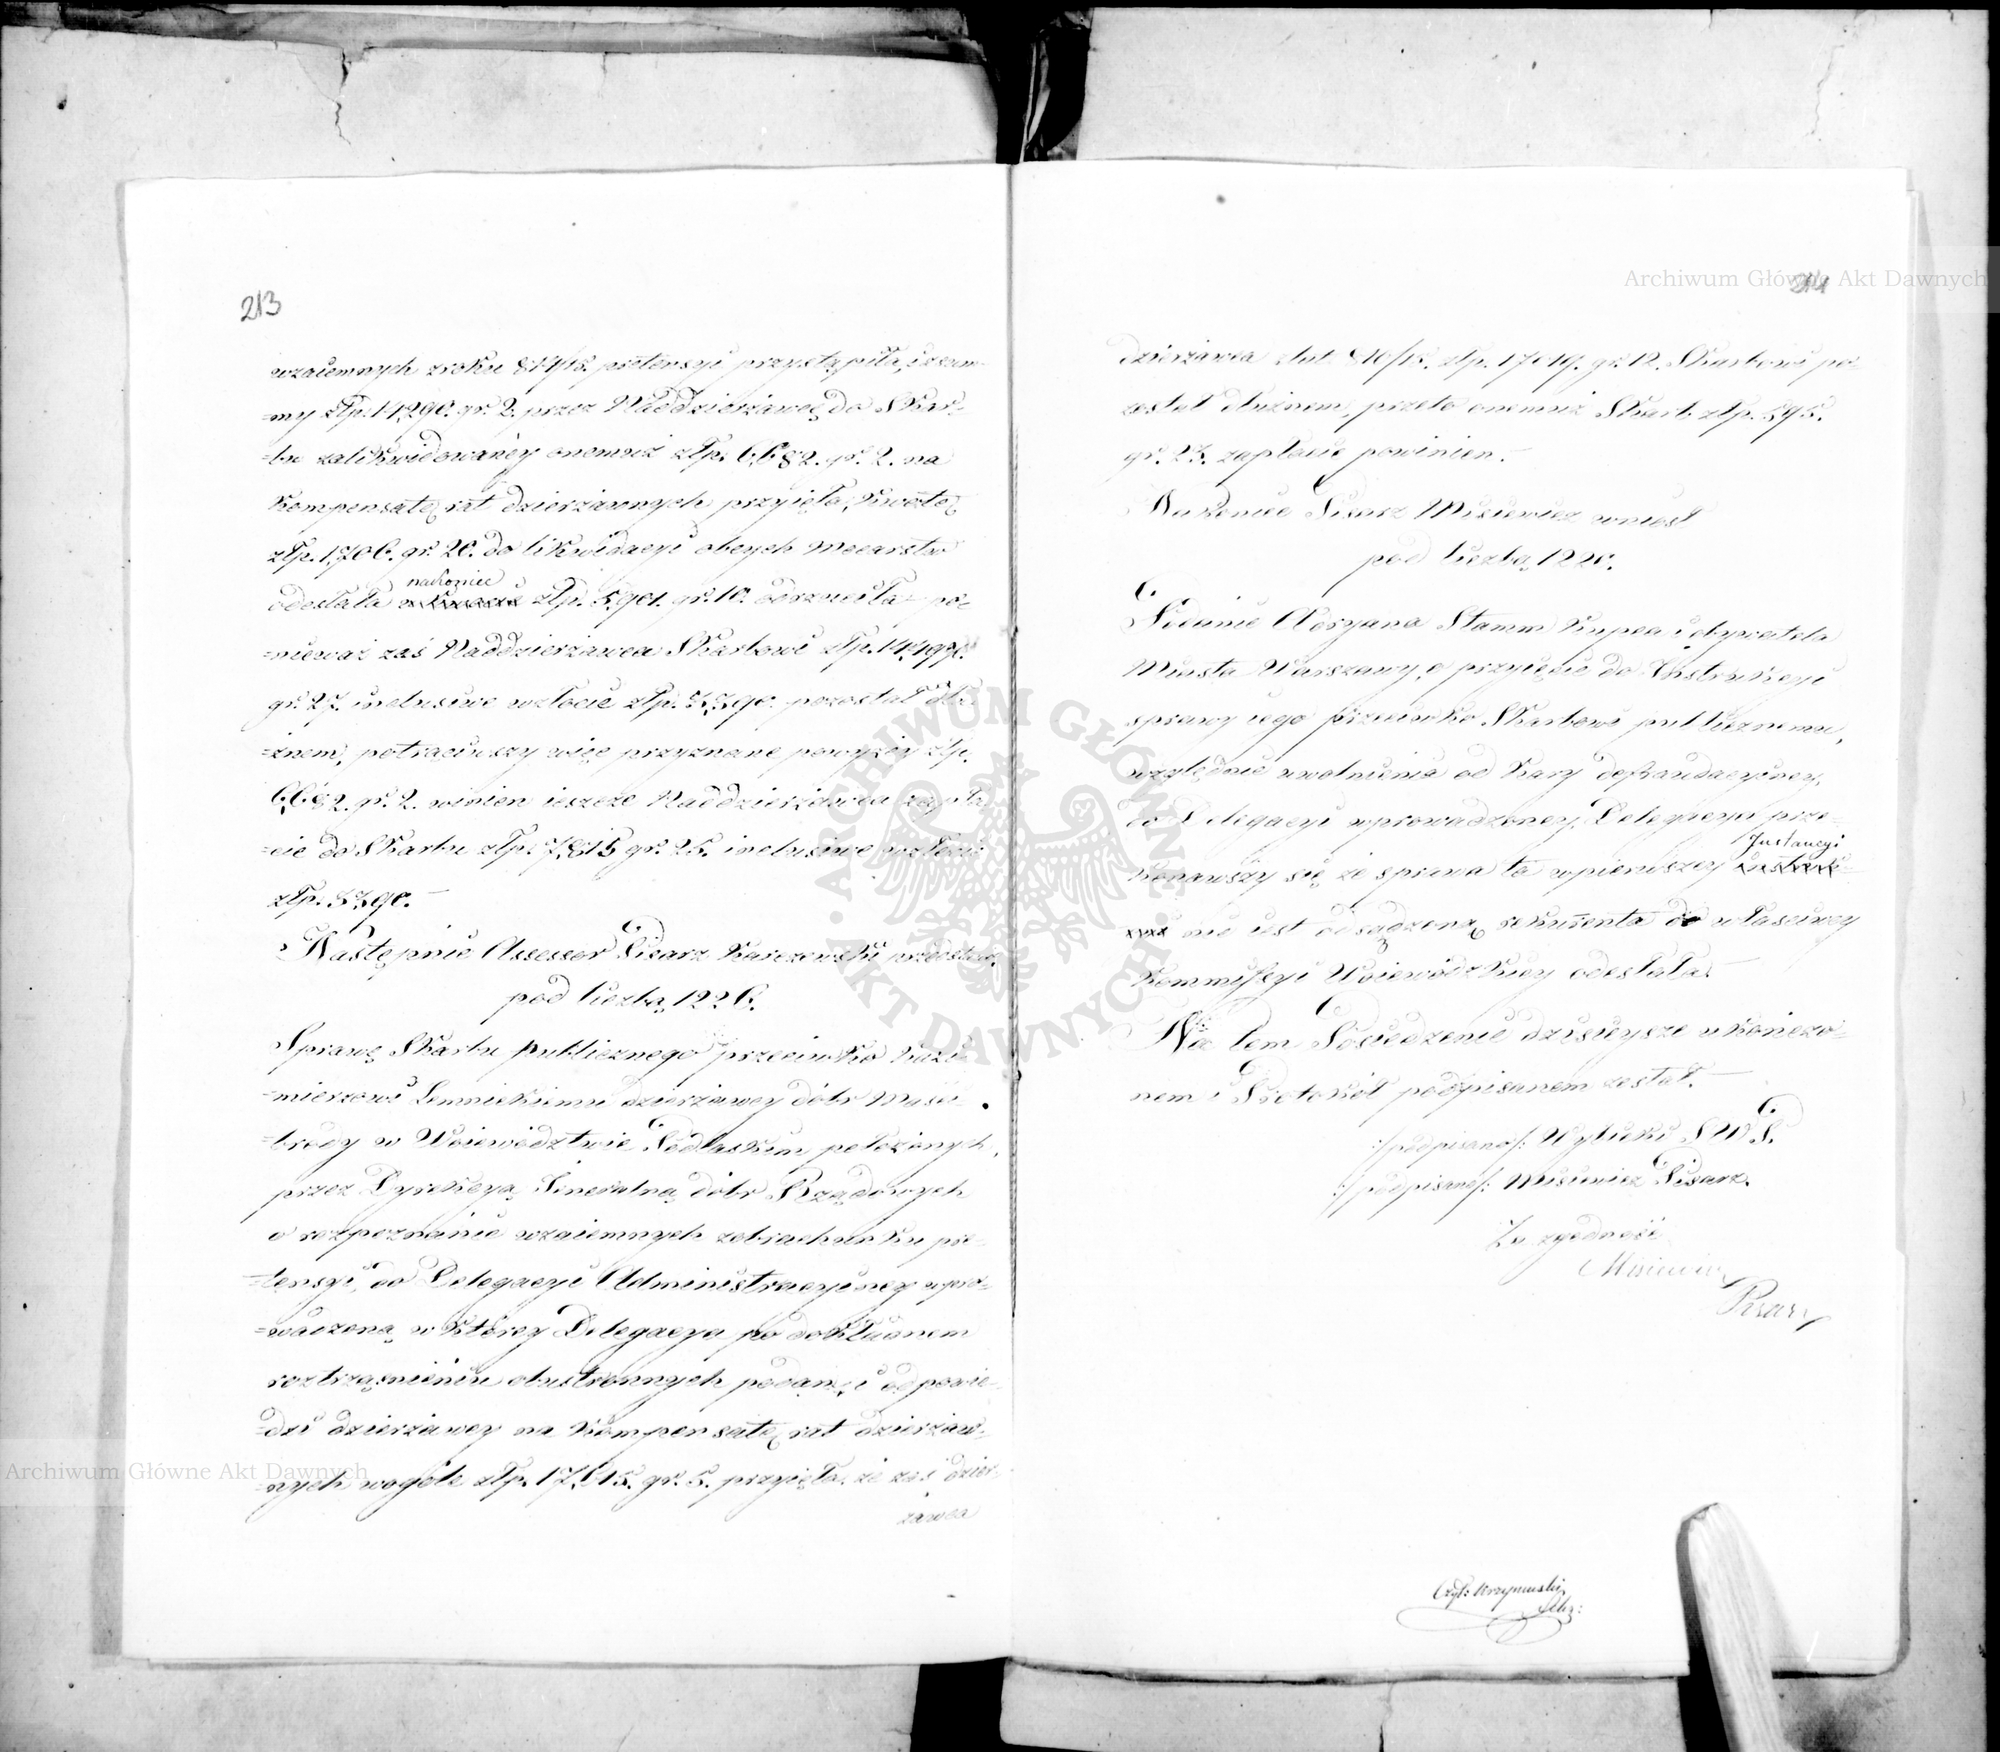 213
wzaiemnych z roku 814/15. pretensyi przystąpiła, z sum-
=my złp. 14,290. gr. 2. przez Naddzierżawcę do Skar-
=bu zalikwidowaney onemuż złp. 6,682. gr. 2. na
kompensatę rat dzierżawnych przyięła, kwotę
złp. 1,706. gr. 20. do likwidacyi obcych mocarstw
odesłała nakoniec złp. 5,901. gr. 10. odrzuciła po-
=nieważ zaś Naddzierżawca Skarbowi złp. 14,497.
gr. 27. inclusive w złocie złp. 5,390. pozostał dłu-
=żnem, potrąciwszy więc przyznane powyżey złp.
6,682. gr. 2. winien ieszcze Naddzierżawca zapła-
=cić do Skarbu złp. 7,815 gr. 25. inclusive w złocie
złp. 5390.
Następnie Assessor Pisarz Karczewski przedstawił
pod liczbą 1226.
Sprawę Skarbu Publicznego przeciwko Kazi-
=mierzowi Lemnickiemu dzierżawcy dóbr Musi-
=brody w Woiewództwie Podlaskim położonych,
przez Dyrekcyą Jeneralną dóbr Rządowych
o rozpoznanie wzaiemnych z obrachunku pre-
=tensyi, do Delegacyi Administracyiney wpro-
=wadzoną, w którey Delegacya po dokładnem
roztrząśnieniu obustronnych podań, i odpowie-
=dzi dzierżawcy na kompensatę rat dzierżaw-
=nych wogóle złp. 17,615. gr. 5. przyięła. że zaś dzier-
żawca
214
dzierżawca z lat 810/15. złp. 17019. gr. 12. Skarbowi po-
został dłużnem, przeto onemuż Skarb złp. 595.
gr. 23. zapłacić powinien.
Nakoniec Pisarz Misiewicz wniósł
pod liczbą 1220.
Podanie Adryana Stamm Kupca i obywatela
Miasta Warszawy, o przyięcie do Instrukcyi
sprawy iego przeciwko Skarbowi publicznemu,
względnie uwolnienia od kary defraudacyiney,
do Delegacyi wprowadzoney. Delegacya prze-
konawszy się że sprawa ta w pierwszey Instancyi
nie iest osądzoną, rekurrenta do właściwey
Kommissyi Woiewódzkiey odesłała.
Na tem Posiedzenie dzisieysze ukończo-
nem i Protokół podpisanem został.
/:podpisano:/ Wyliński S W P.
/:podpisano:/ Misiewicz Pisarz.
Za zgodność
Misiewicz
Pisarz
Czyt: Krzymuski